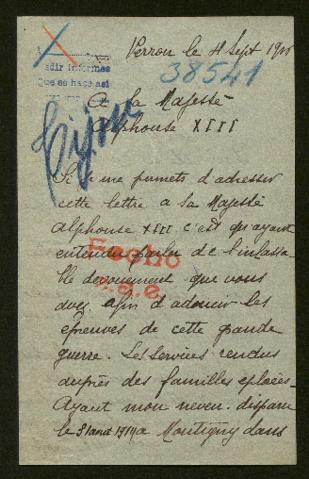 Verron le 4 Sept 19
38541
Pedir informes
Que se hace asi
A Sa Majesté
Alphonse XIII
Si je me permets d'adresser
cette lettre a sa Majesté
Alphonse XIII c'est qu'ayant
entendu parler de l'inlassa
ble devouement que vous
avez afin d'adoucir les
Fecho
epreuves de cette grande
guerre. Les Services rendus
auprès des familles eplorées.
Ayant mon neveu disparu
le 31 aout 1914 a Montigny dans